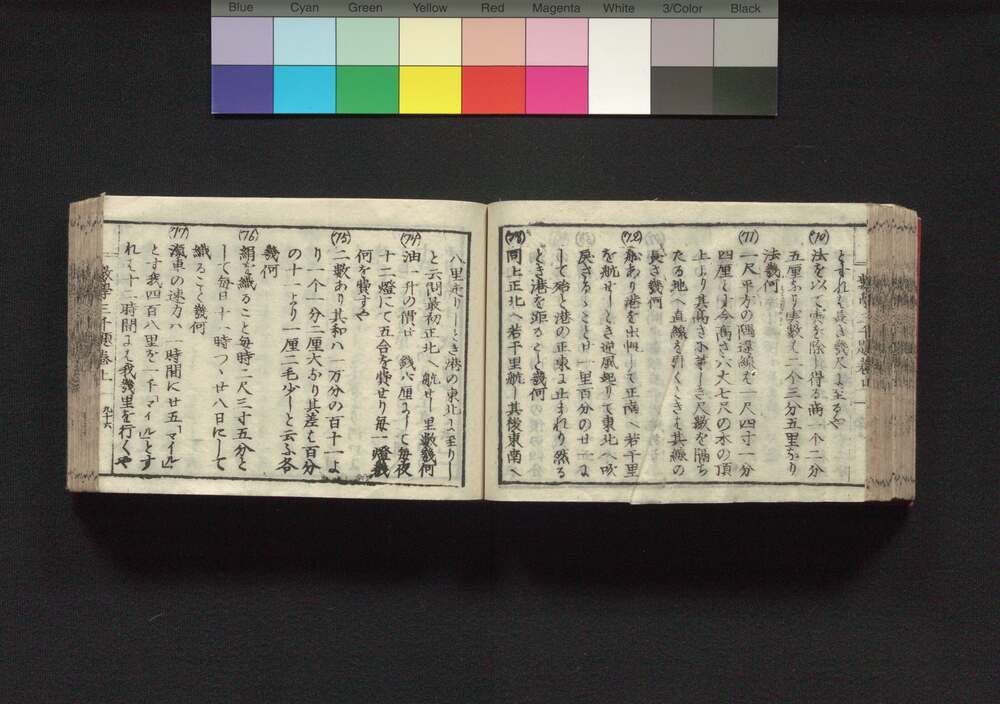 Blue Cyan Green Yellow Red Magenta White 3/Color Black
(70)
法を以て實を除し得る商一个二分
五厘なり實數は一个三分五里なり
法幾何
(71)
一尺平方の隅違線を一尺四寸一分
たる地へ直線を引くときは其線の
長さ幾何
(72)
船あり港を出帆して正南へ若干里
を航せしとき逆風起りて東北へ吹
戻さるゝこと廿一里百分の廿二にして
殆と港の正東に止まれり然る
とき港を距ること幾何
(73)
同上正北へ若干里航し其後東南へ
八里走りしとき港の東北に至りし
と云問最初正北へ航せし里數幾何
(74)
油一升の價廿八錢八厘にして毎夜
十二燈にて五合を費せり毎一燈幾
何を費すや
(75)
二數あり其和ハ一万分の百十一よ
り一个一分二厘大なり其差は百分
の十一より一厘二毛少しと云ふ各
幾何
(76)
絹を織ること毎時二尺三寸五分と
して毎日十一時つゝ廿八日にして
織ること幾何
(77)
瀛車の速力ハ一時間に廿五「マイル」
とす我四百八里を一千「マイル」とす
れは十二時間には我幾里を行くや
數學三千題卷上 九十六